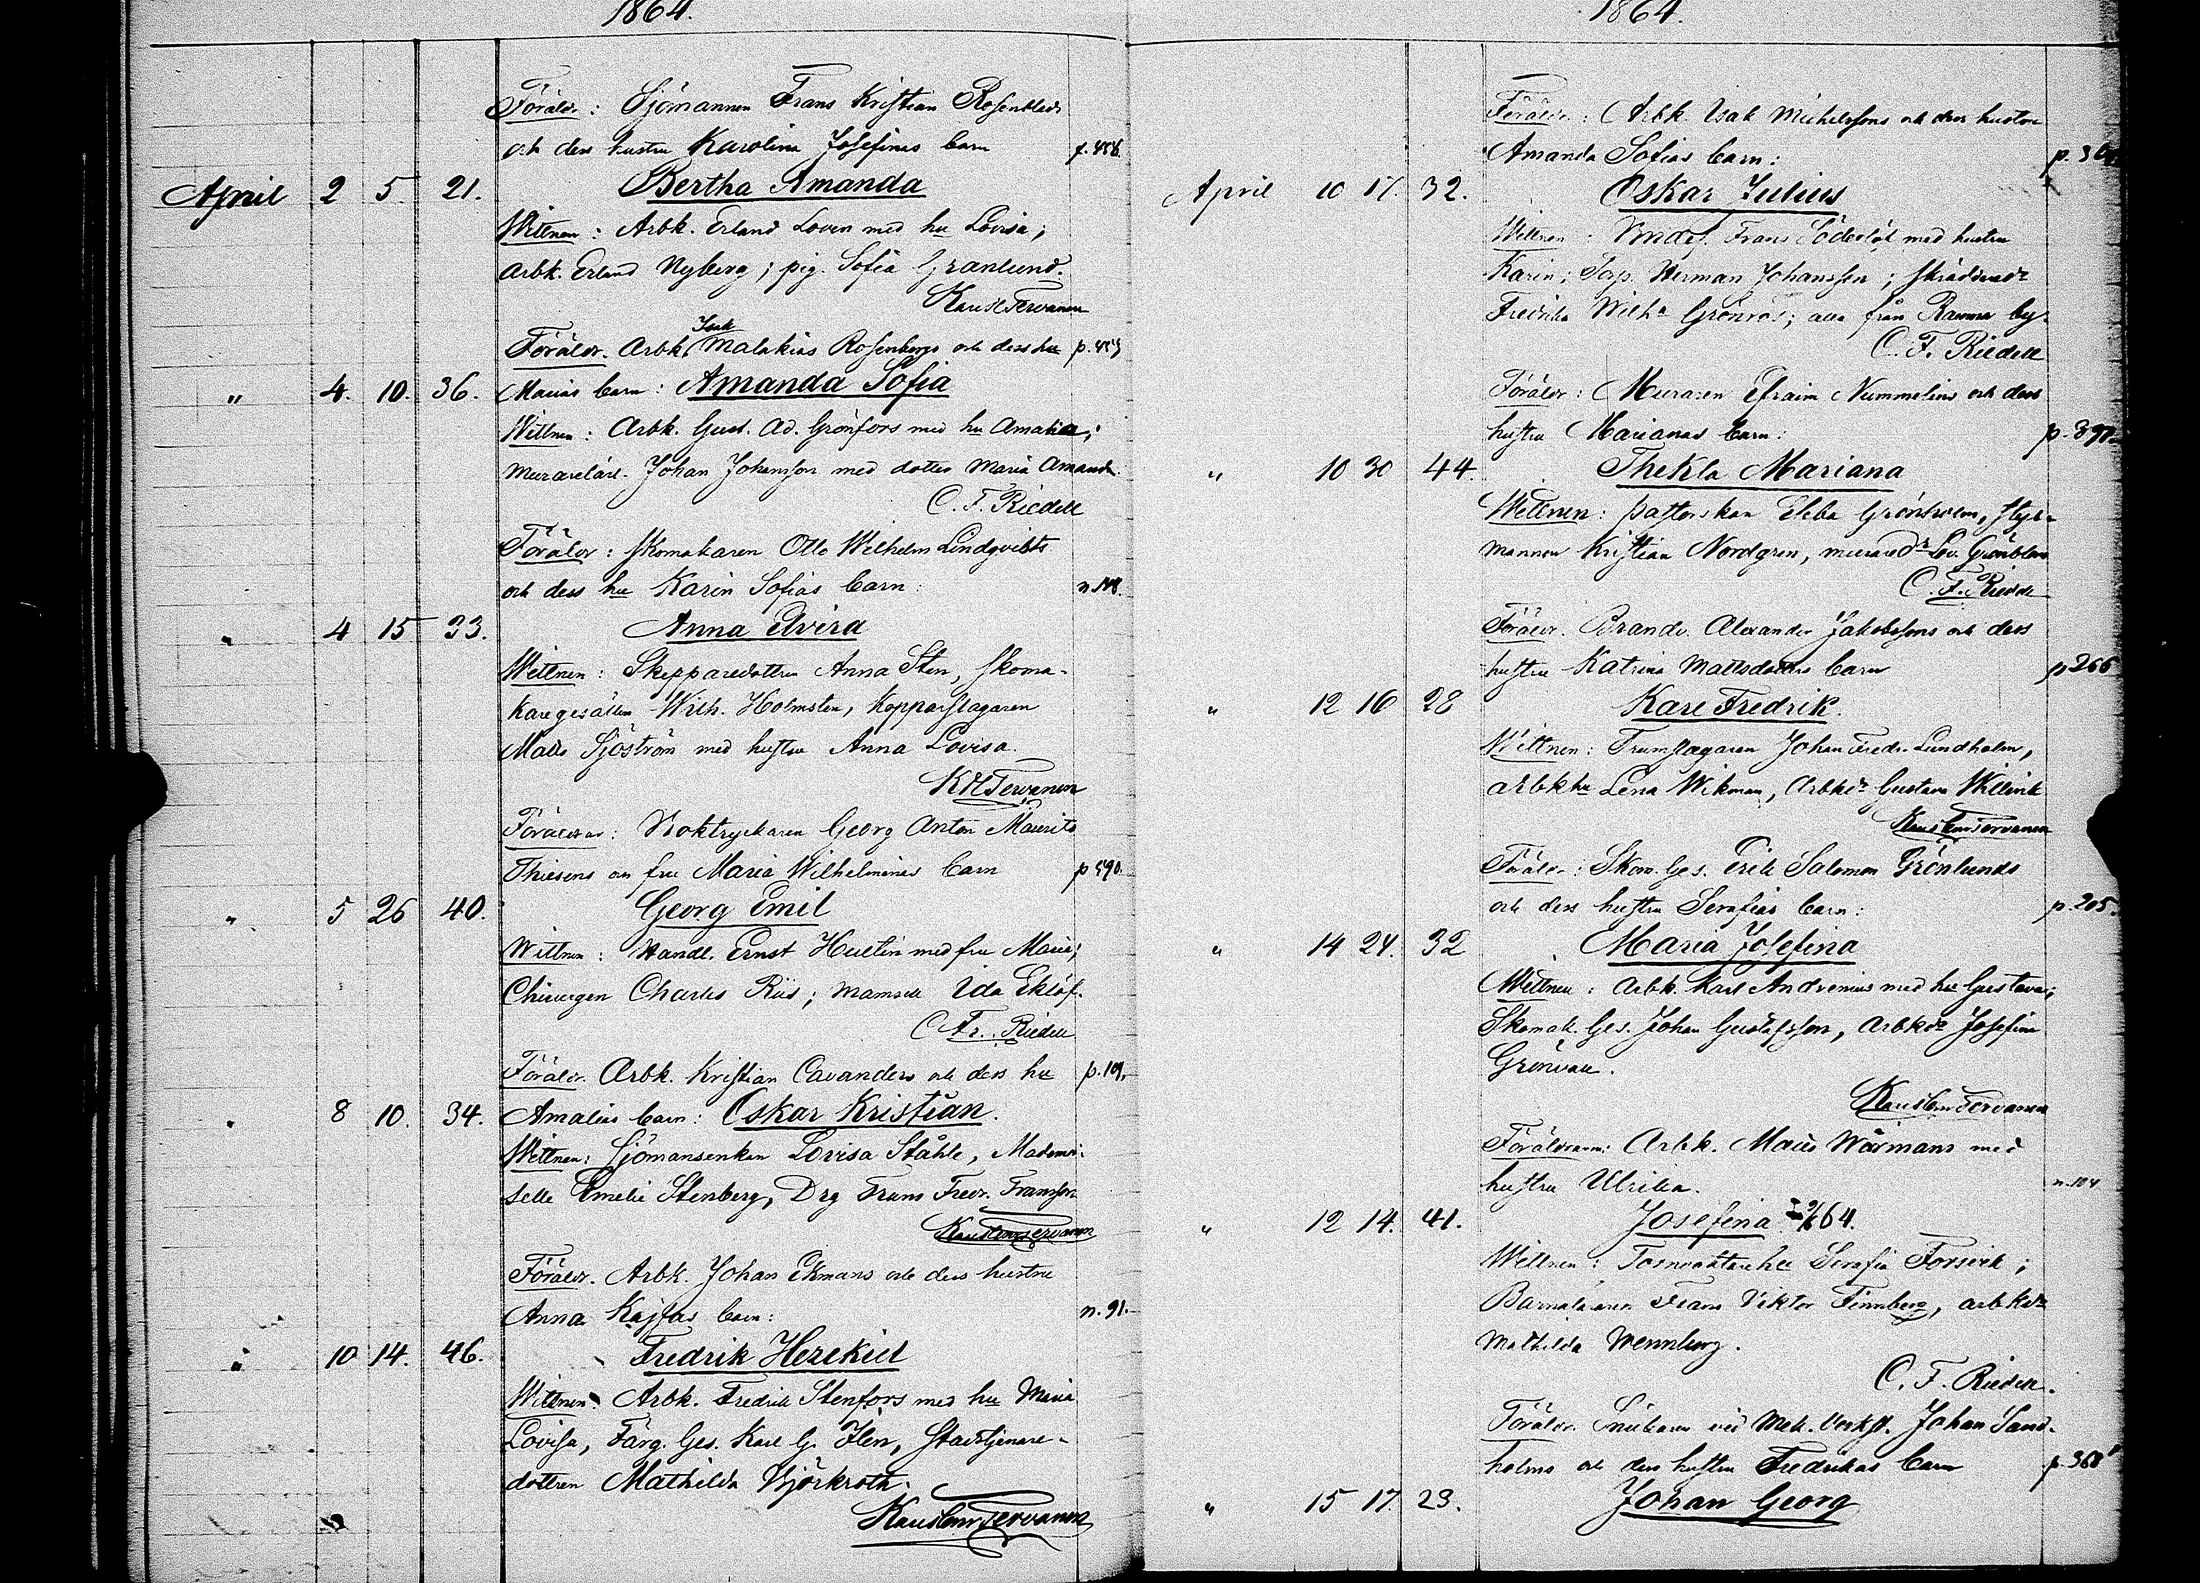 1864.
Föräldr: Sjömannen Frans Kristian Rosenblads
och dess hustru Karolina Josefinas barn p. 456.
April 2 5 21. Bertha Amanda
Wittnen: Arbk. Erland Loven med hu Lovisa;
Arbk. Erland Nyberg; pig. Sofia Granlund.
Föräldr. Arbk. Isak Malakias Rosenbergs och dess hu p.
" 4. 10. 36. Marias barn: Amanda Sofia
Wittnen: Arbk. Gust. Ad. Grönfors med hu Amalia;
murarelärl. Johan Johansson med dotter Maria Amanda
C. F. Riedell
Föräldr: Skomakaren Otto Wilhelm Lindqvists
och dess hu Karin Sofias barn:
" 4 15 33. Anna Elvira
Wittnen: Skepparedottren Anna Sten, skoma-
karegesällen Wilh. Holmsten, Kopparslagaren
Matts Sjöström med hustru Anna Lovisa.
KHTervanen
Föräldrar: Boktryckaren Georg Anton Maurits
Thiesens och fru Maria Wilhelminas barn p 590.
" 5 26 40. Georg Emil
Wittnen: Handl. Ernst Hultin med fru Maria;
Chirurgen Charles Riis; mamsell Ida Eklöf.
C Fr. Riedell
Föräldr. Arbk. Kristian Cavanders och dess hu p. 101.
" 8 10. 34. Amalias barn: Oskar Kristian.
Wittnen: Sjömansenkan Lovisa Ståhle, Mademoi-
selle Emelie Stenberg, Drg Frans Fredr. Fransson
Föräldr. Arbk. Johan Ekmans och dess hustru
Anna Kajsas barn: n. 91.
" 10 14. 46. Fredrik Hezekiel
Wittnen: Arbk. Fredrik Stenfors med hu Maria
Lovisa, Färg. Ges. Karl G. Ilen, Stadstjenare-
dottren Mathilda Björkroth.
1864.
Föräldr: Arbk. Isak Michelssons och dess hustru
Amanda Sofias barn:
April 10 17. 32. Oskar Julius
Wittnen: Frans Söderlöf med hustru
Karin; Herman Johansson; skräddaredr
Fredrika Wilha Grönros; alla från Rauma by.
C. F. Riedell
Föräldr: Muraren Efraim Nummelins och dess
hustru Marianas barn:
" 10 30 44. Thekla Mariana
Wittnen: pastorskan Ebba Grönholm, styr-
mannen Kristian Nordgren, muraredr Lov. Grönblom
C. F. Riedell
Föräldr. Brandv. Alexander Jakobssons och dess
hustru Katrina Mattsdotters barn p 266
" 12 16 28 Karl Fredrik.
Wittnen: Trumslagaren Johan Fredr. Lundholm,
arbkhu Lena Wikman, Arbkdr Gustava
Föräldr: Skom. Ges. Erik Salomon Grönlunds
och dess hustru Serafias barn: p. 205.
" 14 24. 32 Maria Josefina
Wittnen: Arbk. Karl Andrenius med hu Gustava;
Skomak. Ges. Johan Gustafsson, Arbkdr Josefina
Grönvall.
Föräldrarne: Arbk. Matts Wärmans med
hustru Ulrika. n. 104
" 12 14. 41. Josefina 64.
Wittnen: Tornväktarehu Serafia Forsvik;
Barnaläraren Frans Viktor Finnberg, arbkdr
Mathilda Wennberg.
C. F. Riedell.
Föräldr. Snickaren vid Mek. Verkst. Johan Sand-
holms och dess hustru Fredrikas barn p. 368
" 15 17. 23. Johan Georg